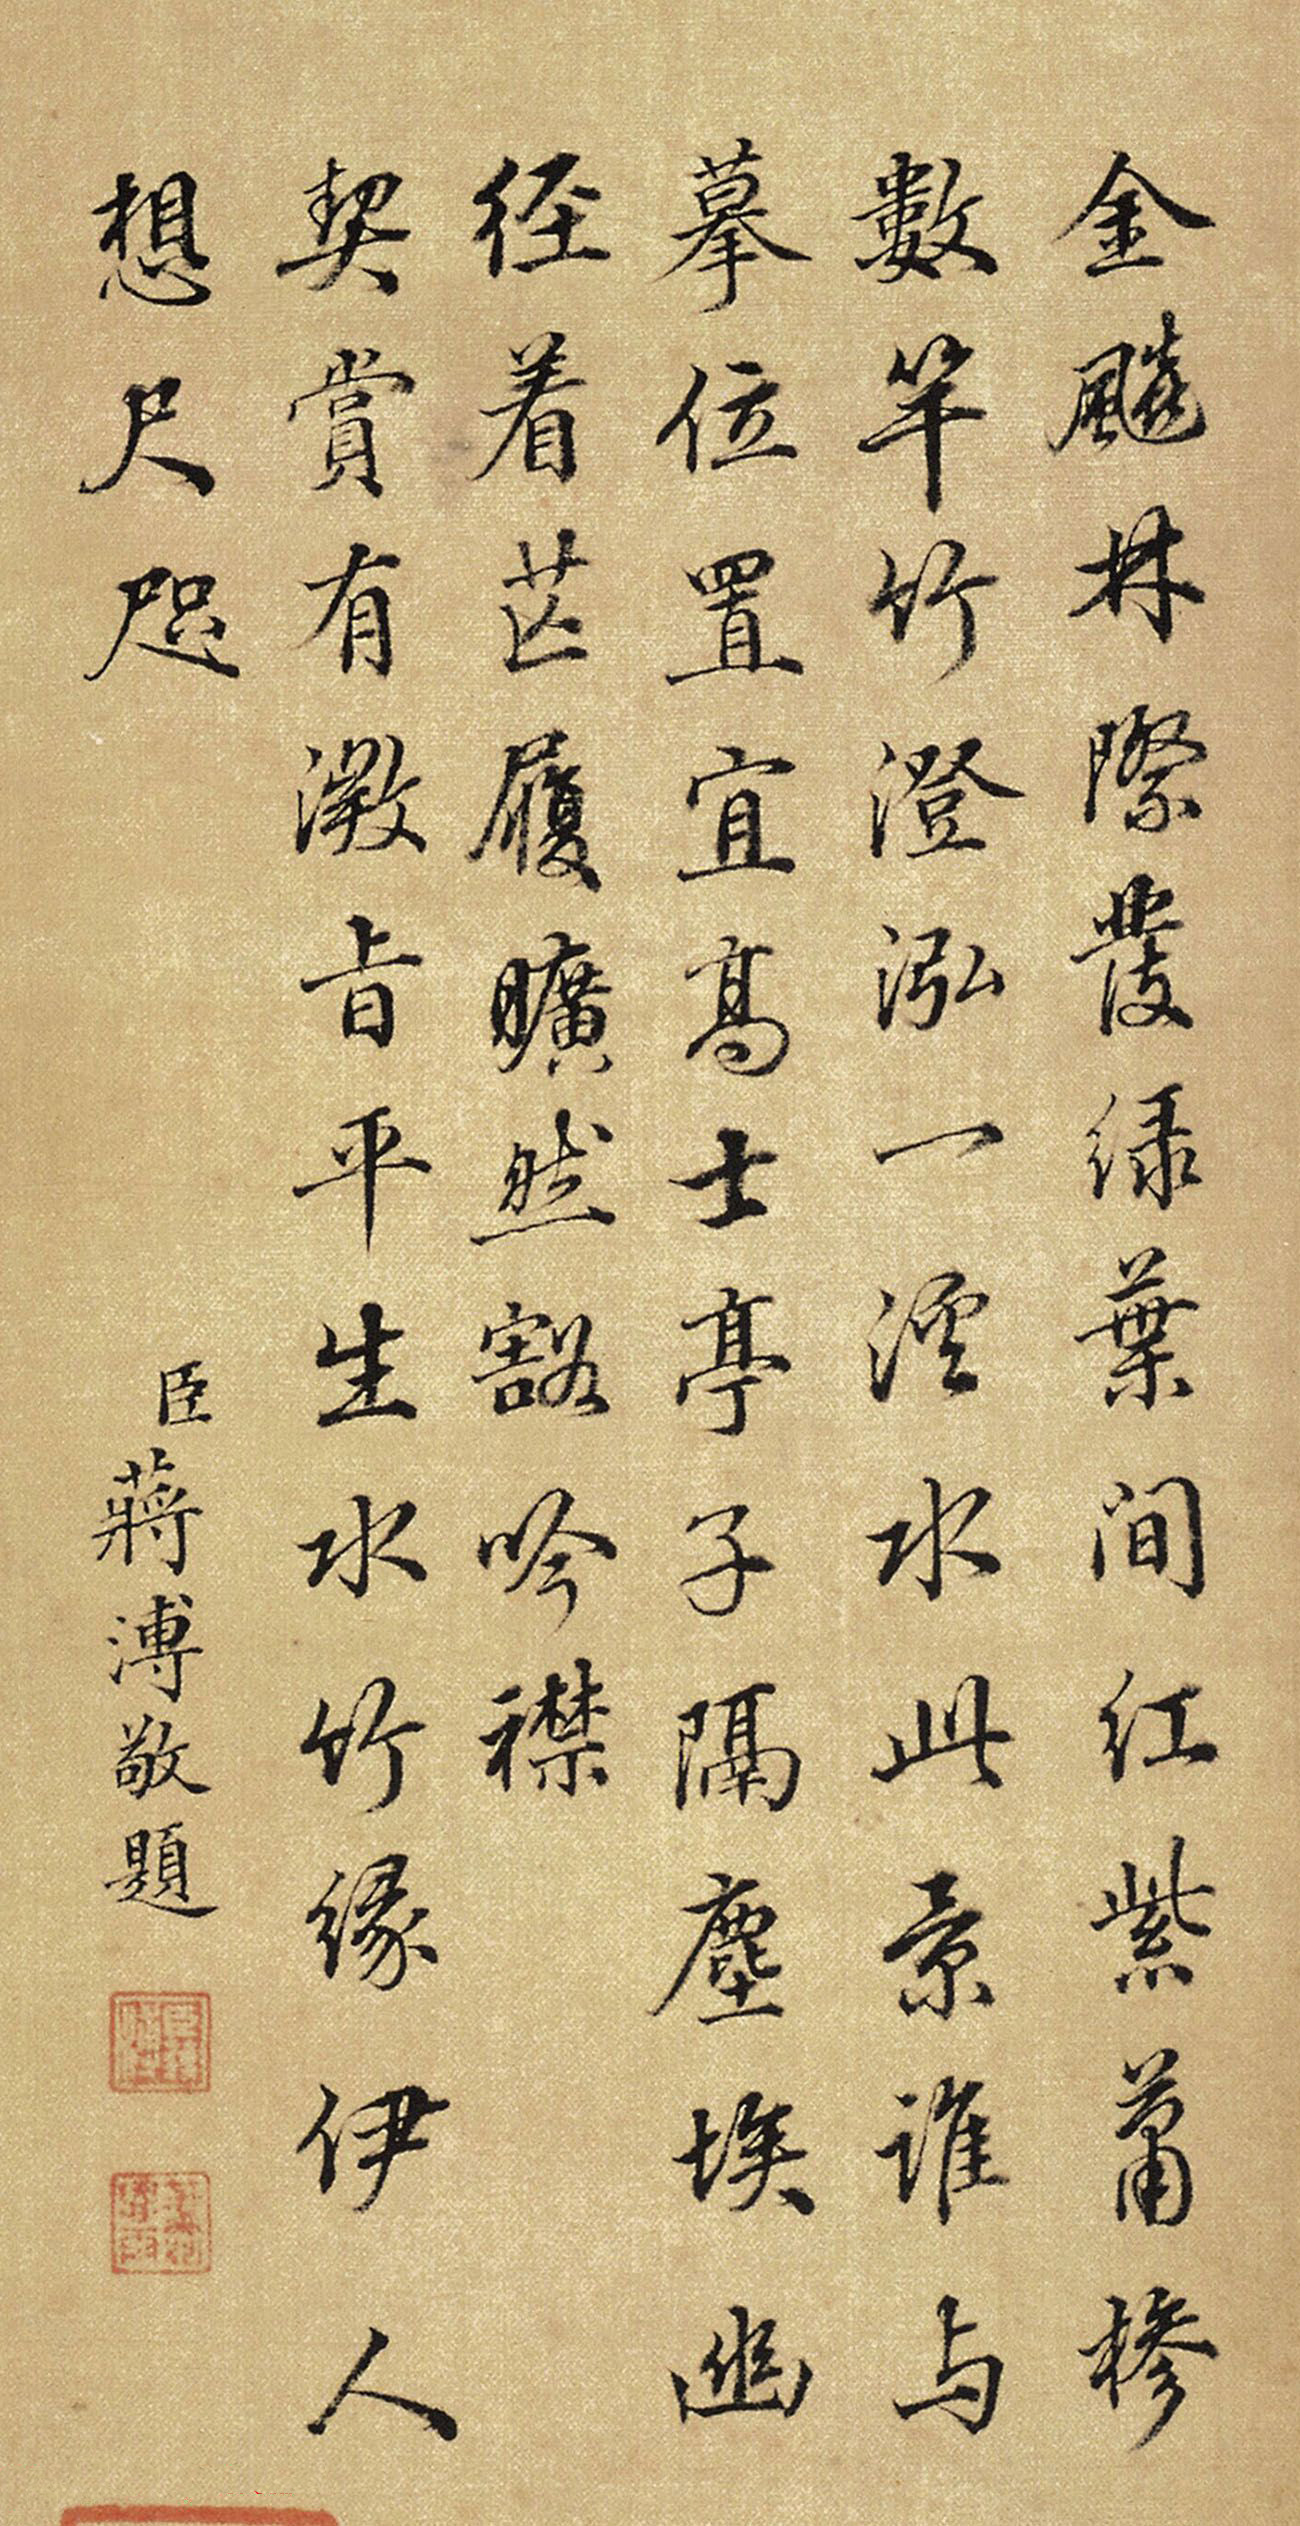 金飈林際發綠葉間紅紫蕭椮
數竿竹澄泓一潭水此景誰与
摹位置宜高士亭子隔塵埃幽
徑着芒履曠然豁吟襟
契賞有澂旨平生水竹緣伊人
想尺咫
臣蔣溥敬題